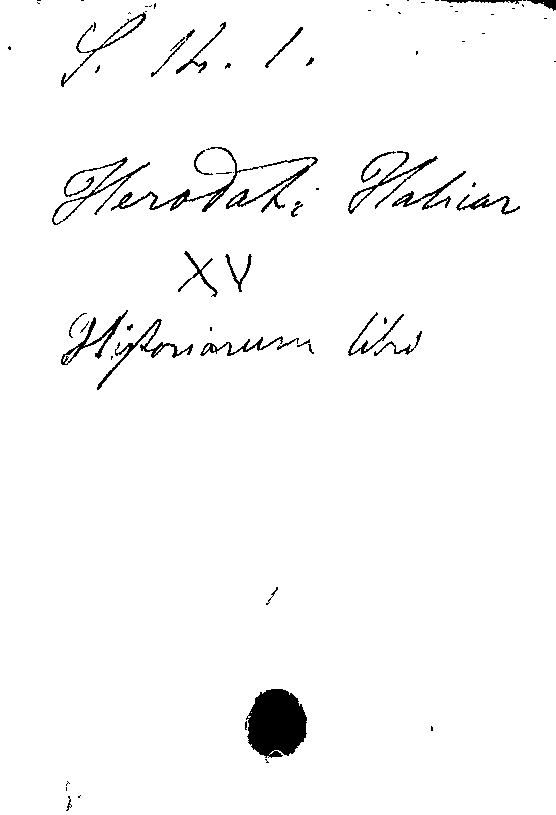 S. 12. 1.
Herodoti Halicar
XV
Historiarum libri